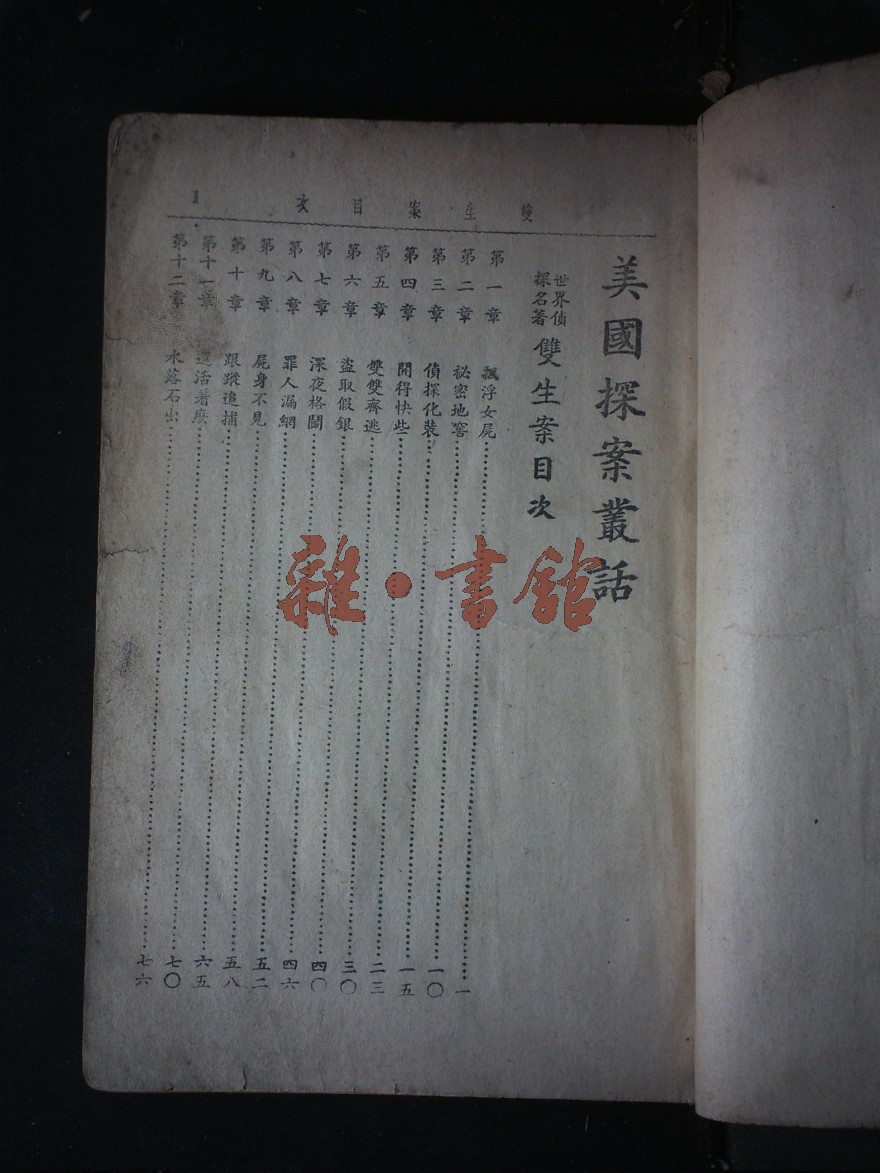 雙生案目次 1
美國探案叢話
世界偵探名著 雙生案目次
第一章 飄浮女屍 一
第二章 祕密地窖 一〇
第三章 偵探化裝 一五
第四章 開得快些 二三
第五章 雙雙齊逃 三〇
第六章 盜取假銀 四〇
第七章 深夜格鬭 四六
第八章 罪人漏網 五二
第九章 屍身不見 五八
第十章 跟蹤追捕 六五
第十一章 還活着麽 七〇
第十二章 水落石出 七六
雜·書館